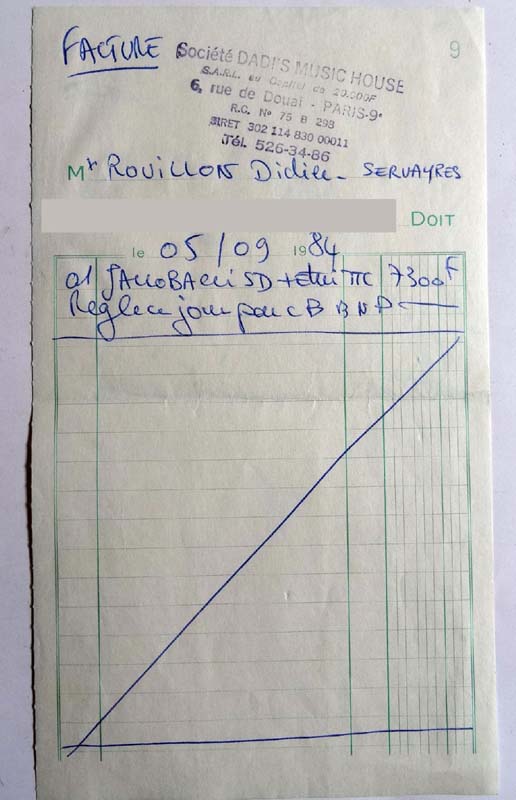 FACTURE
Société DADI'S MUSIC HOUSE
S.A.R.L. au Capital de 20.000F
6, rue de Douai - PARIS-9e
R.C. N° 75 B 298
SIRET 302 114 830 00011
Tél. 526-34-86
9
Mr ROUILLON Didier - SERVAYRES
DOIT
le 05/09 1984
01 JACOBACCI SD + étui TTC 7300F
Réglé ce jour par CB BNP